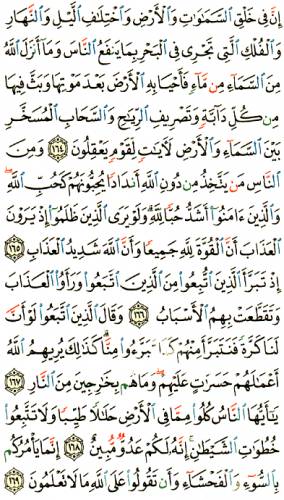 إِنَّ فِي خَلْقِ ٱلسَّمَٰوَٰتِ وَٱلْأَرْضِ وَٱخْتِلَٰفِ ٱلَّيْلِ وَٱلنَّهَارِ
وَٱلْفُلْكِ ٱلَّتِي تَجْرِي فِي ٱلْبَحْرِ بِمَا يَنفَعُ ٱلنَّاسَ وَمَآ أَنزَلَ ٱللَّهُ
مِنَ ٱلسَّمَآءِ مِن مَّآءٍ فَأَحْيَا بِهِ ٱلْأَرْضَ بَعْدَ مَوْتِهَا وَبَثَّ فِيهَا
مِن كُلِّ دَآبَّةٍ وَتَصْرِيفِ ٱلرِّيَٰحِ وَٱلسَّحَابِ ٱلْمُسَخَّرِ
بَيْنَ ٱلسَّمَآءِ وَٱلْأَرْضِ لَءَايَٰتٍ لِّقَوْمٍ يَعْقِلُونَ ١٦٤ وَمِنَ
ٱلنَّاسِ مَن يَتَّخِذُ مِن دُونِ ٱللَّهِ أَندَادًا يُحِبُّونَهُمْ كَحُبِّ ٱللَّهِ
وَٱلَّذِينَ ءَامَنُوٓا۟ أَشَدُّ حُبًّا لِّلَّهِ وَلَوْ يَرَى ٱلَّذِينَ ظَلَمُوٓا۟ إِذْ يَرَوْنَ
ٱلْعَذَابَ أَنَّ ٱلْقُوَّةَ لِلَّهِ جَمِيعًا وَأَنَّ ٱللَّهَ شَدِيدُ ٱلْعَذَابِ
١٦٥ إِذْ تَبَرَّأَ ٱلَّذِينَ ٱتُّبِعُوا۟ مِنَ ٱلَّذِينَ ٱتَّبَعُوا۟ وَرَأَوُا۟ ٱلْعَذَابَ
وَتَقَطَّعَتْ بِهِمُ ٱلْأَسْبَابُ ١٦٦ وَقَالَ ٱلَّذِينَ ٱتَّبَعُوا۟ لَوْ أَنَّ
لَنَا كَرَّةً فَنَتَبَرَّأَ مِنْهُمْ كَمَا تَبَرَّءُوا۟ مِنَّا كَذَٰلِكَ يُرِيهِمُ ٱللَّهُ
أَعْمَٰلَهُمْ حَسَرَٰتٍ عَلَيْهِمْ وَمَا هُم بِخَٰرِجِينَ مِنَ ٱلنَّارِ ١٦٧
يَٰٓأَيُّهَا ٱلنَّاسُ كُلُوا۟ مِمَّا فِي ٱلْأَرْضِ حَلَٰلًا طَيِّبًا وَلَا تَتَّبِعُوا۟
خُطُوَٰتِ ٱلشَّيْطَٰنِ إِنَّهُۥ لَكُمْ عَدُوٌّ مُّبِينٌ ١٦٨ إِنَّمَا يَأْمُرُكُم
بِٱلسُّوٓءِ وَٱلْفَحْشَآءِ وَأَن تَقُولُوا۟ عَلَى ٱللَّهِ مَا لَا تَعْلَمُونَ ١٦٩